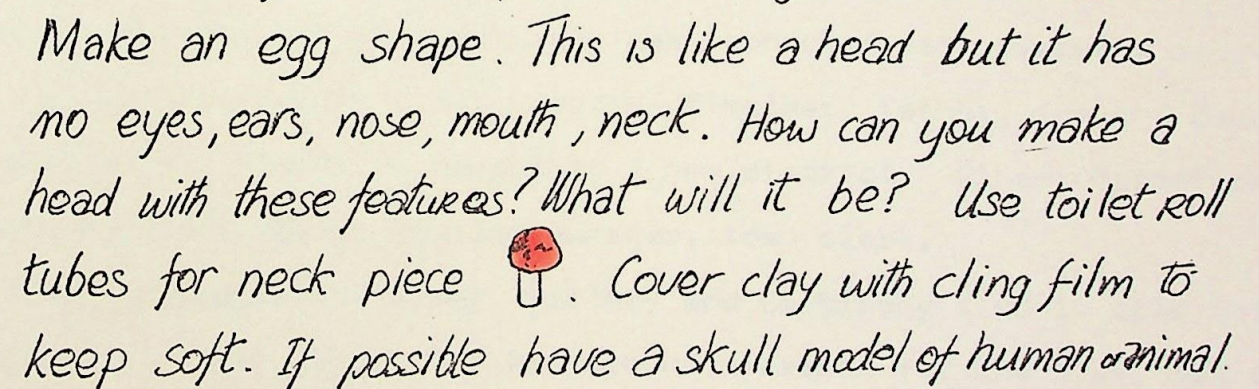 Make an egg shape. This is like a head but it has
no eyes, ears, nose, mouth, neck. How can you make a
head with these features? What will it be? Use toilet roll
tubes for neck piece . Cover clay with cling film to
keep soft. If possible have a skull model of human or animal.